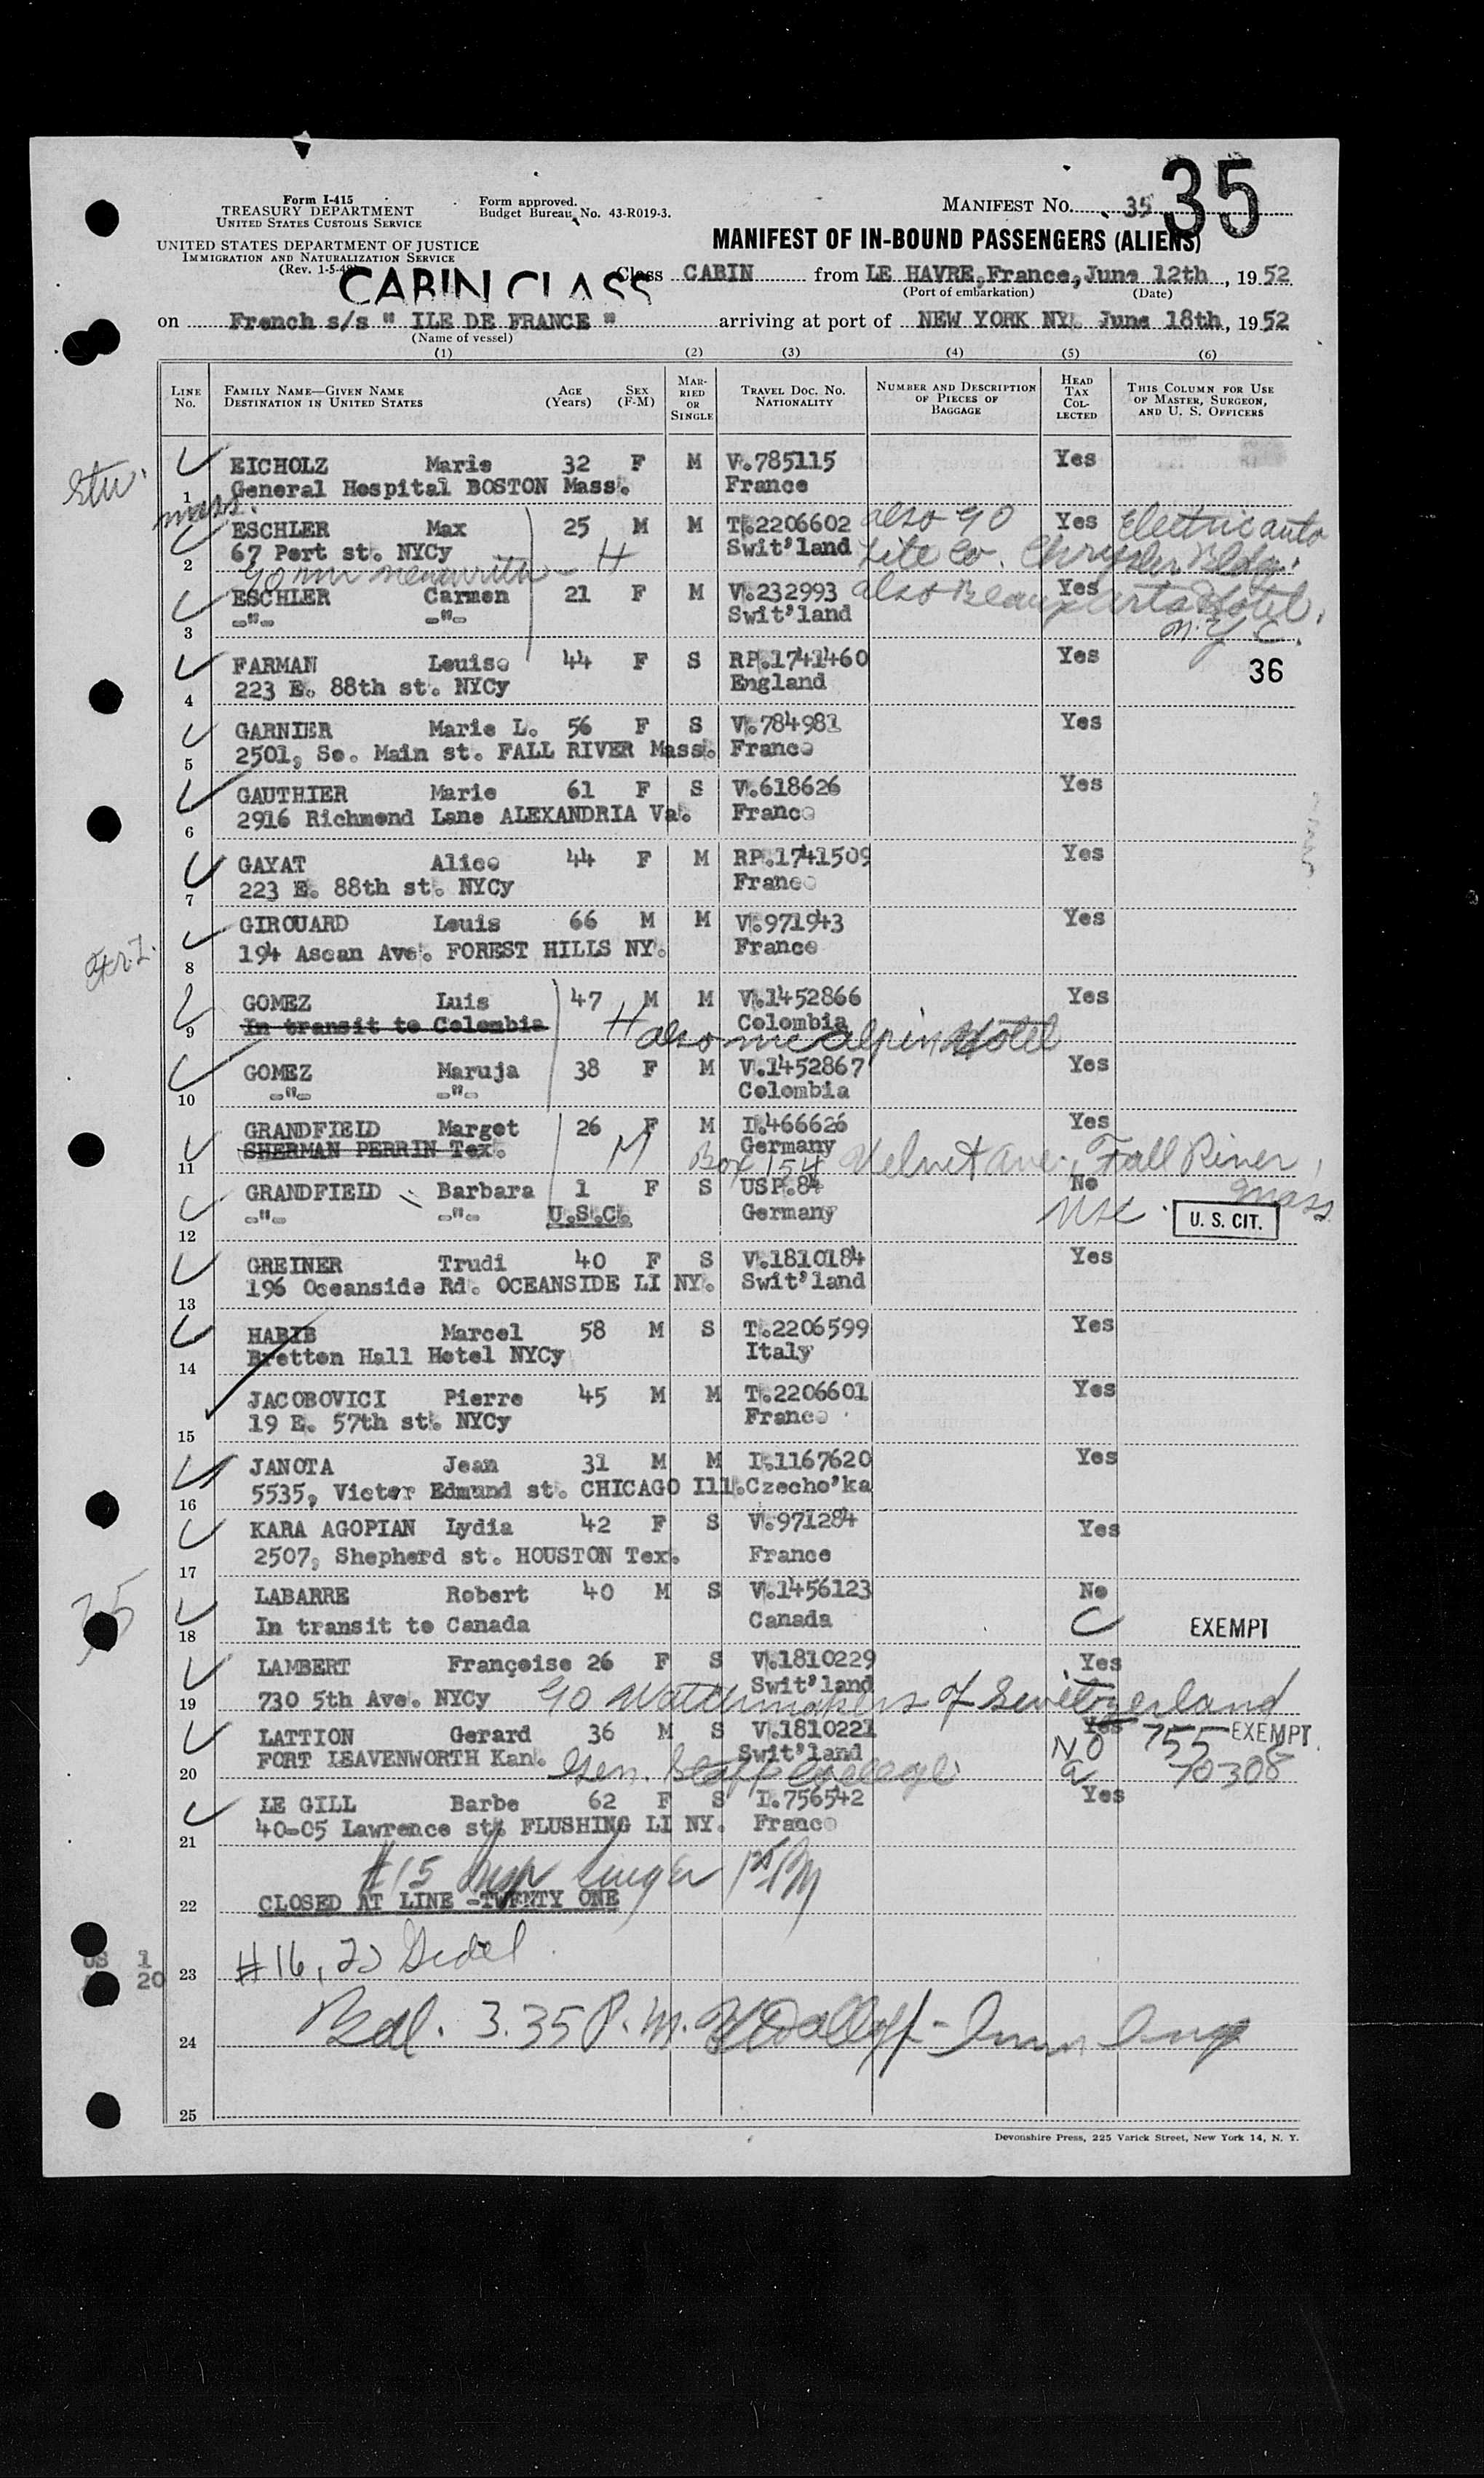 35
Form I-415
TREASURY DEPARTMENT
UNITED STATES CUSTOMS SERVICE
Form approved.
Budget Bureau No. 43-R019-3.
MANIFEST No. 35
UNITED STATES DEPARTMENT OF JUSTICE
IMMIGRATION AND NATURALIZATION SERVICE
(Rev. 1-5-48)
MANIFEST OF IN-BOUND PASSENGERS (ALIENS)
CABIN CLASS
Class CABIN from LE HAVRE, France, June 12th, 1952
(Port of embarkation) (Date)
on French s/s " ILE DE FRANCE " arriving at port of NEW YORK NY. June 18th, 1952
(Name of vessel)
(1) (2) (3) (4) (5) (6)
LINE No. FAMILY NAME—GIVEN NAME DESTINATION IN UNITED STATES AGE (Years) SEX (F-M) MARRIED OR SINGLE TRAVEL DOC. No. NATIONALITY NUMBER AND DESCRIPTION OF PIECES OF BAGGAGE HEAD TAX COLLECTED THIS COLUMN FOR USE OF MASTER, SURGEON, AND U. S. OFFICERS
EICHOLZ Marie 32 F M V.785115 Yes
1 General Hospital BOSTON Mass. France
Mass.
ESCHLER Max 25 M M T.2206602 also c/o Yes Electric auto
2 67 Port st. NYCy H Swit'land Lite Co. Chrysler Bldg.
ESCHLER Carmen 21 F M V.232993 also Beaux Arts Hotel, Yes
3 -"- -"- Swit'land N.Y.C.
FARMAN Louise 44 F S RP.1741460 Yes 36
4 223 E. 88th st. NYCy England
GARNIER Marie L. 56 F S V.784981 Yes
5 2501, So. Main st. FALL RIVER Mass. France
GAUTHIER Marie 61 F S V.618626 Yes
6 2916 Richmond Lane ALEXANDRIA Va. France
GAYAT Alice 44 F M RP.1741509 Yes
7 223 E. 88th st. NYCy France
GIROUARD Louis 66 M M V.971943 Yes
8 194 Ascan Ave. FOREST HILLS NY. France
GOMEZ Luis 47 M M V.1452866 Yes
9 In transit to Colombia Colombia
H also McAlpin Hotel
GOMEZ Maruja 38 F M V.1452867 Yes
10 -"- -"- Colombia
GRANDFIELD Margot 26 F M I.466626 Yes
11 SHERMAN PERRIN Tex. M Germany
Box 154 Velnet ave., Fall River, Mass
GRANDFIELD Barbara 1 F S USP.84 No
12 -"- -"- U.S.C. Germany USC. U. S. CIT.
GREINER Trudi 40 F S V.1810184 Yes
13 196 Oceanside Rd. OCEANSIDE LI NY. Swit'land
HABIB Marcel 58 M S T.2206599 Yes
14 Bretton Hall Hotel NYCy Italy
JACOBOVICI Pierre 45 M M T.2206601 Yes
15 19 E. 57th st. NYCy France
JANOTA Jean 31 M M I.1167620 Yes
16 5535, Victor Edmund st. CHICAGO Ill. Czecho'ka
KARA AGOPIAN Lydia 42 F S V.971284 Yes
17 2507, Shepherd st. HOUSTON Tex. France
LABARRE Robert 40 M S V.1456123 No
18 In transit to Canada Canada C EXEMPT
35
LAMBERT Françoise 26 F S V.1810229 Yes
19 730 5th Ave. NYCy Swit'land
c/o Watchmakers of Switzerland
LATTION Gerard 36 M S V.1810221 Yes 755 EXEMPT
20 FORT LEAVENWORTH Kan. Swit'land NO 70308
Gen. Staff College
LE GILL Barbe 62 F S I.756542 Yes
21 40-05 Lawrence st. FLUSHING LI NY. France
#15
22 CLOSED AT LINE -TWENTY ONE
US 1
20
23 #16, 20
24 Bdl. 3.35 P.M.
25
Devonshire Press, 225 Varick Street, New York 14, N. Y.